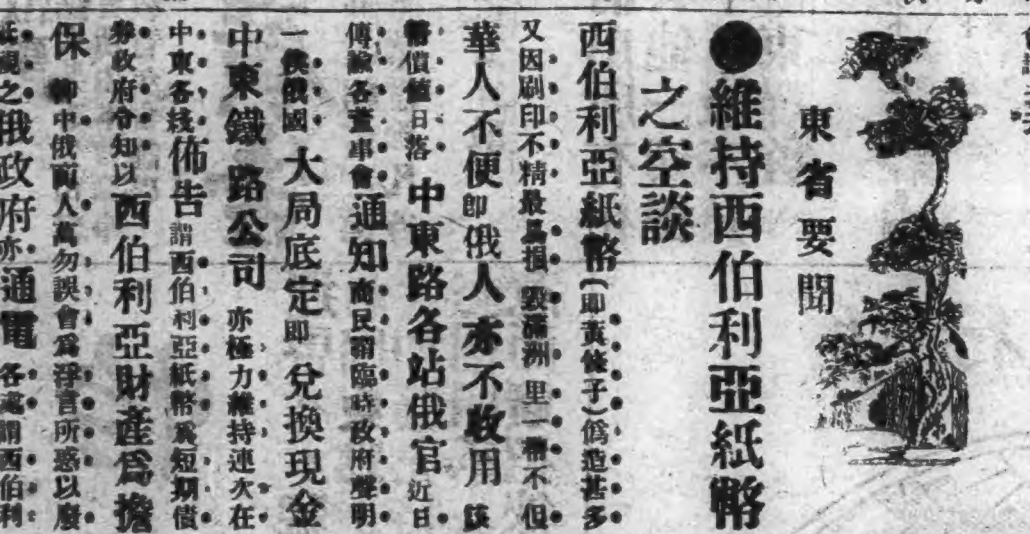 東省要聞
●維持西伯利亞紙幣
之空談
西伯利亞紙幣(即黃條子)偽造甚多
又因刷印不精最易損毀滿洲里一帶不但
華人不便即俄人亦不收用該
幣價值日落中東路各站俄官近日
傳諭各董事會通知商民謂臨時政府聲明
一俟俄國大局底定即兌換現金
中東鐵路公司亦極力維持連次在
中東各綫佈告謂西伯利亞紙幣爲短期債
券政府令知以西伯利亞財產爲擔
保仰中俄商人萬勿誤會爲浮言所惑以廢
視之俄政府亦通電各處謂西伯利